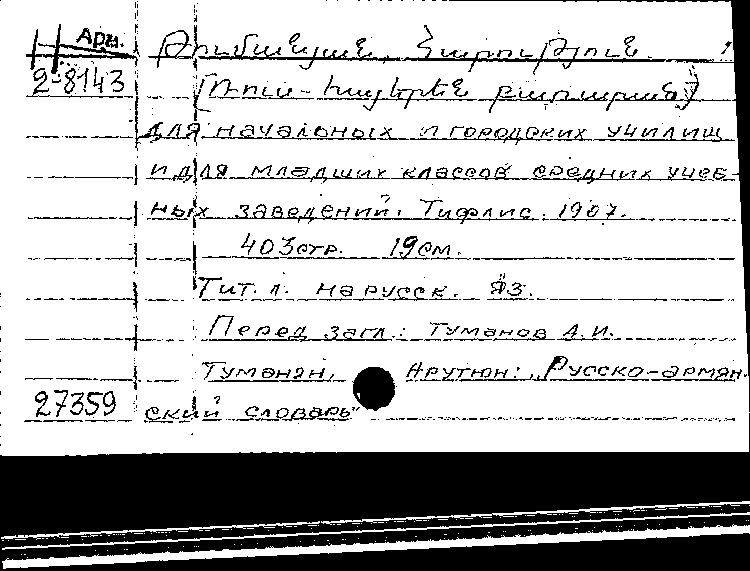 Арм. Թումանյան, Հարություն.
2-8143 [Ռուս-հայերեն բառարան]
для начальных и городских училищ
и для младших классов средних учеб-
ных заведений. Тифлис. 1907.
403 стр. 19 см.
Тит. л. на русск. яз.
Перед загл.: Туманов А.И.
Туманян, Арутюн: "Русско-армян-
27359 ский словарь"